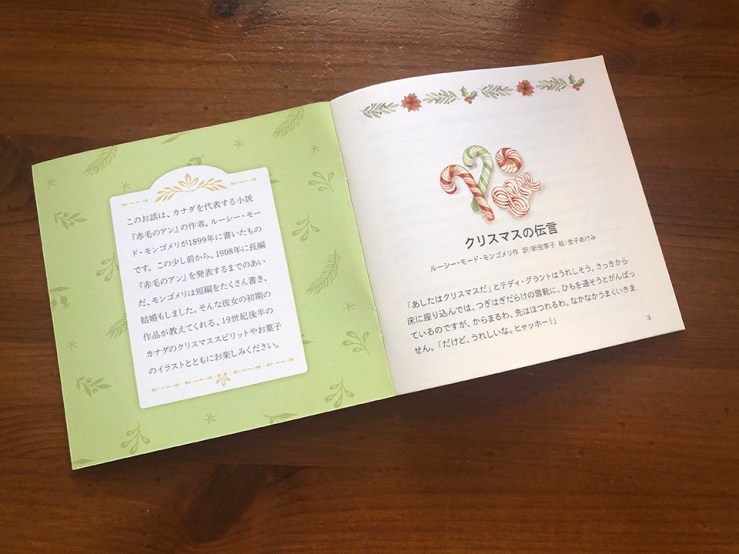 このお話は、カナダを代表する小説
『赤毛のアン』の作者、ルーシー・モー
ド・モンゴメリが1899年に書いたもの
です。この少し前から、1908年に長編
『赤毛のアン』を発表するまでのあい
だ、モンゴメリは短編をたくさん書き、
結婚もしました。そんな彼女の初期の
作品が教えてくれる、19世紀後半の
カナダのクリスマススピリットやお菓子
のイラストとともにお楽しみください。
クリスマスの伝言
ルーシー・モード・モンゴメリ作 訳/新田享子 絵/金子あけみ
「あしたはクリスマスだ」とテディ・グラントはうれしそう。さっきから
床に座り込んでは、つぎはぎだらけの雪靴に、ひもを通そうとがんばっ
ているのですが、からまるわ、先はほつれるわ。なかなかうまくいきま
せん。「だけど、うれしいな。ヒャッホー!」
3